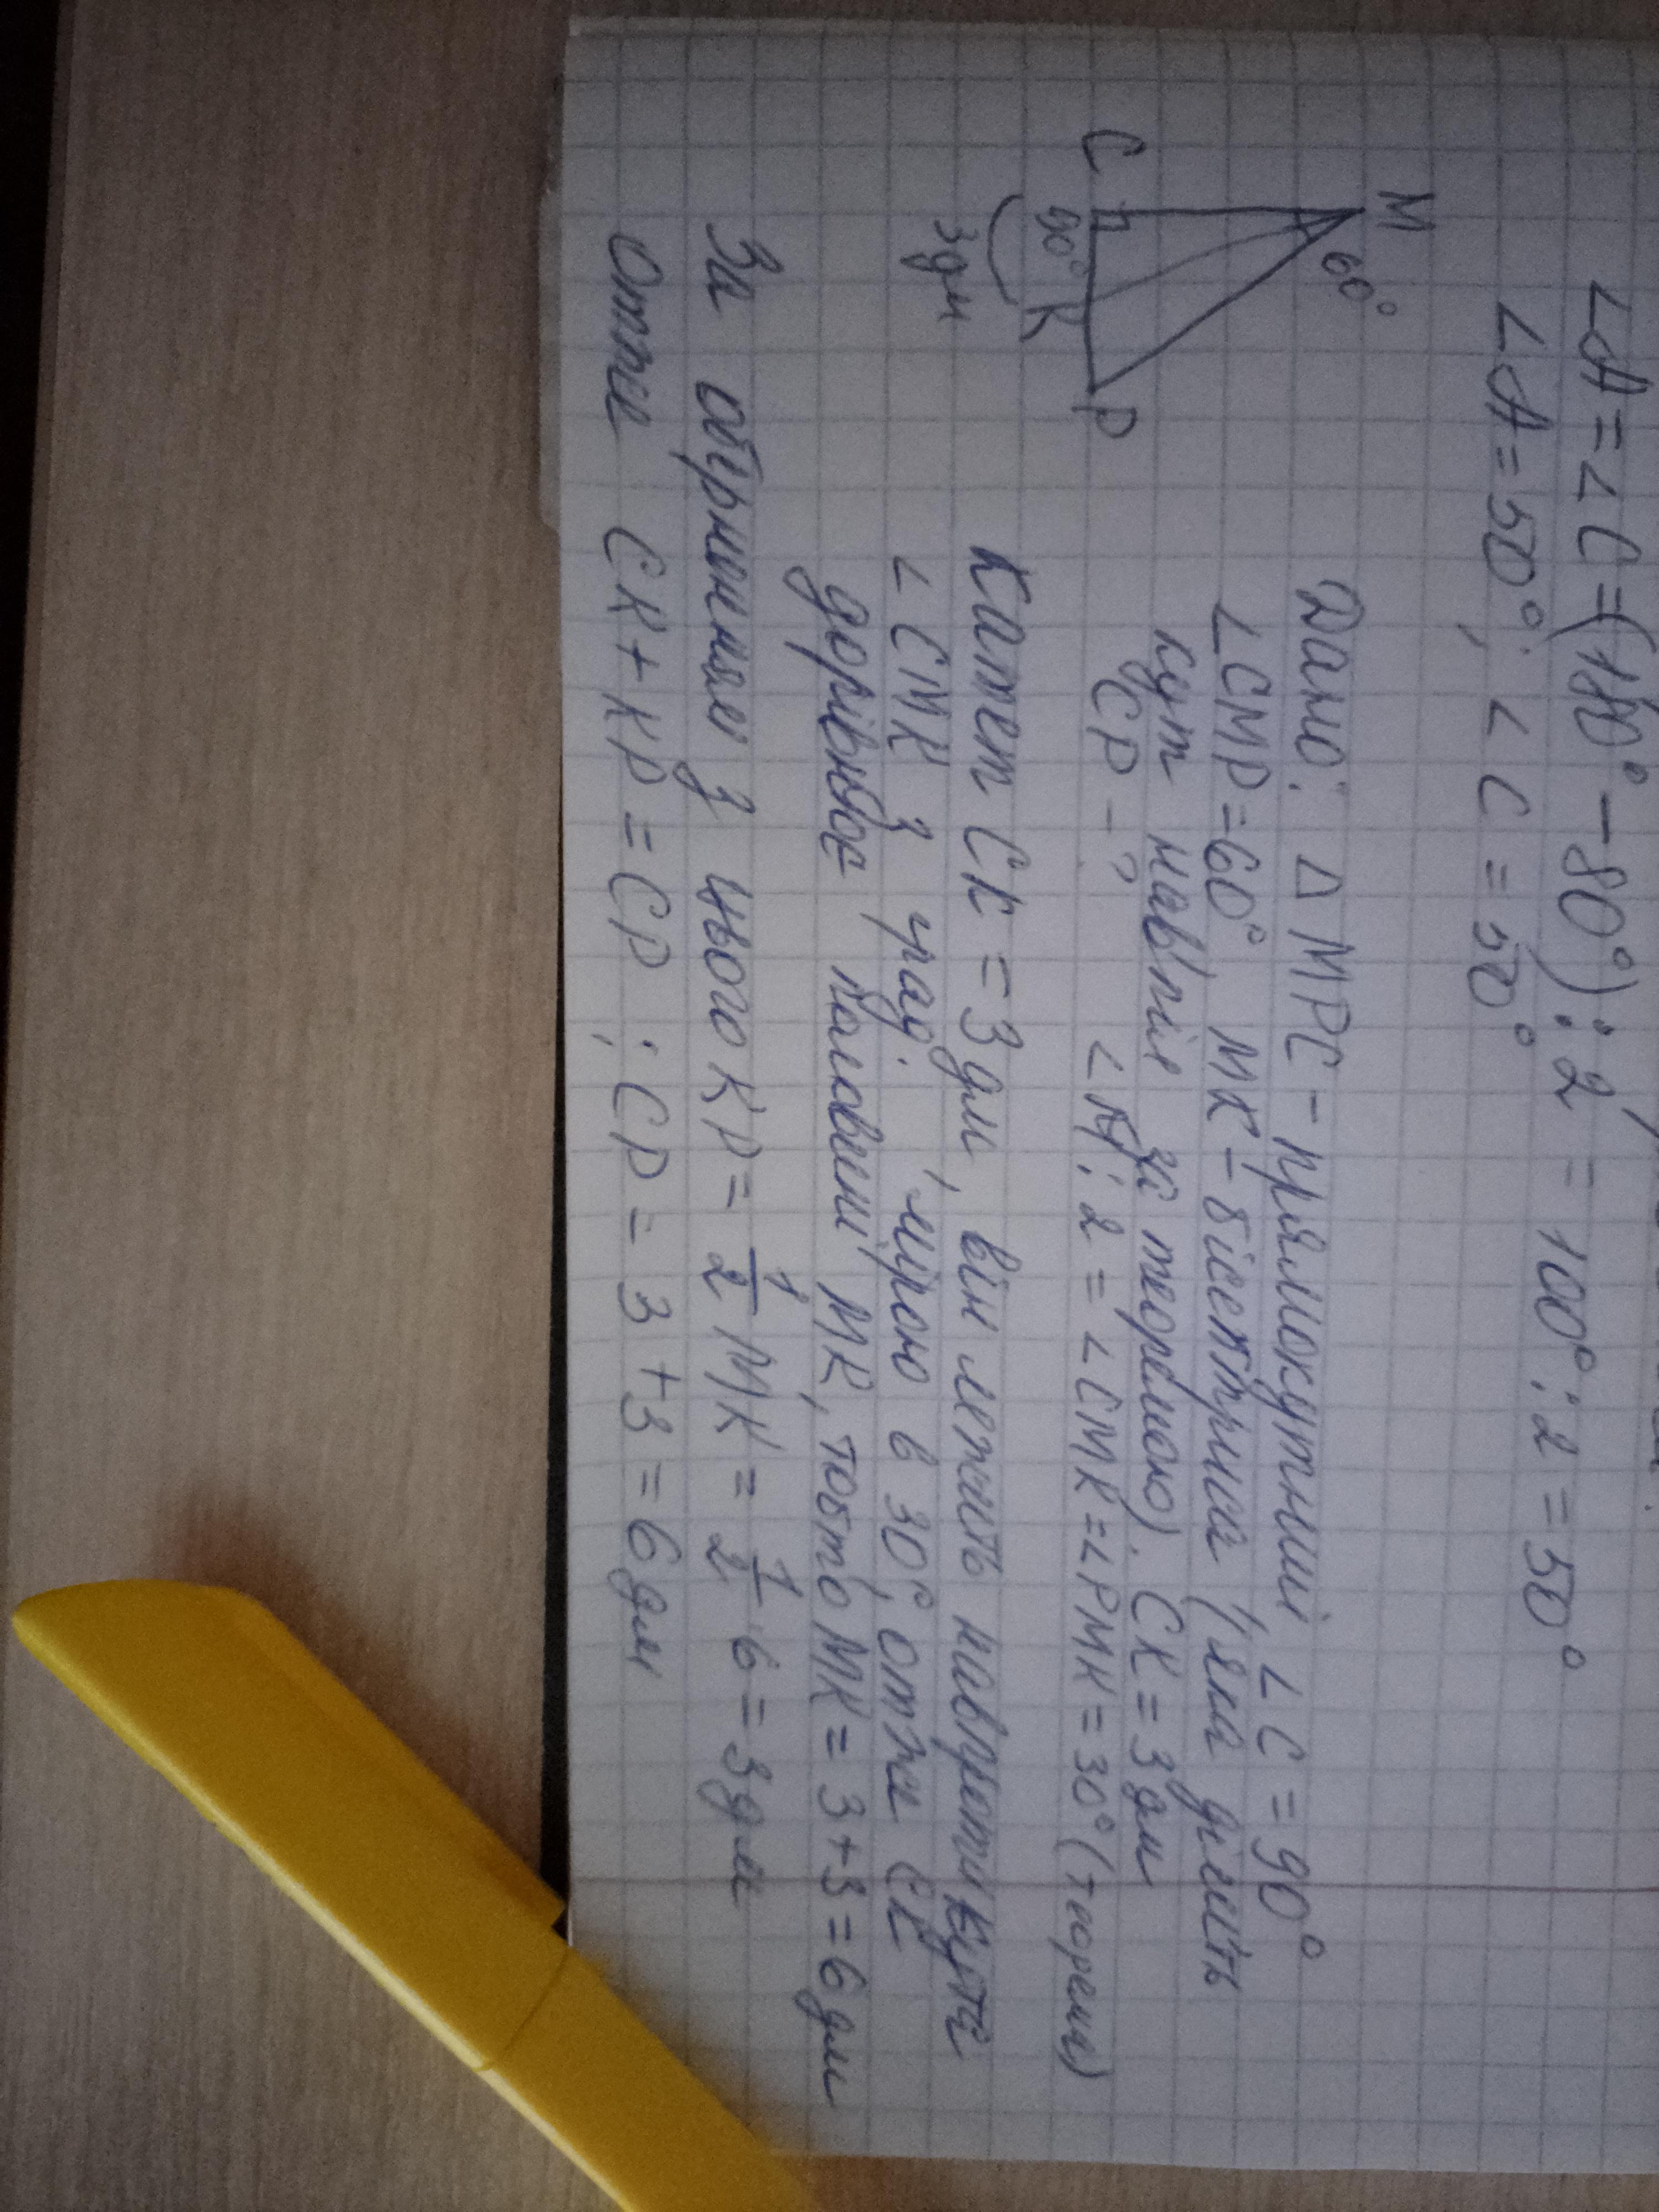 ∠A = ∠C = (180° - 80°) : 2 = 100° : 2 = 50°
∠A = 50°; ∠C = 50°
M
60°
C
90°
K
P
3 дм
Дано: Δ MPC - прямокутний ∠C = 90°
∠CMP = 60° MK - бісектриса (яка ділить
кут навпіл за теоремою). CK = 3 дм
CP - ? ∠M : 2 = ∠CMK = ∠PMK = 30° (теорема)
Катет CK = 3 дм, він лежить навпроти кута
∠CMK з град. мірою в 30°, отже CK
дорівнює половині MK, тобто MK = 3 + 3 = 6 дм
За з цього KP = 1/2 MK = 1/2 · 6 = 3 дм
Отже CK + KP = CP ; CP = 3 + 3 = 6 дм